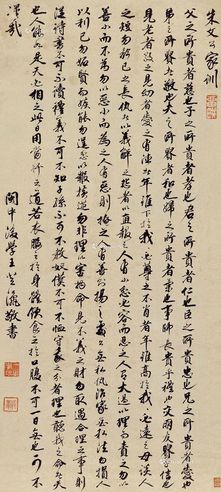 朱文公家訓
父之所貴者慈也子之所貴者孝也君之所貴者仁也臣之所貴者忠也兄之所貴者愛也
弟之所貴者敬也夫之所貴者和也婦之所貴者柔也事師長貴乎禮也交朋友貴乎信也
見老者敬之見幼者愛之有德者年雖下於我我必尊之不肖者年雖高於我我必遠之毋談人
之短勿矜己之長仇者以義解之怨者以直報之人有小過含容而忍之人有大過以理而責之勿以
善小而不為勿以惡小而為之人有惡則掩之人有善則揚之處公無私仇治家無私法勿損人
以利己勿妒賢而嫉能勿逞忿以報橫逆勿非禮以害物命見不義之財勿取遇合理之事則
從詩書不可不讀禮義不可不知子孫不可不教奴僕不可不恤守我之分者理也聽我之命者天
也人能如是天必相之此日用常行之道若衣服之於身體飲食之於口腹不可一日無也可不
謹哉
閩中後學王芝敬書